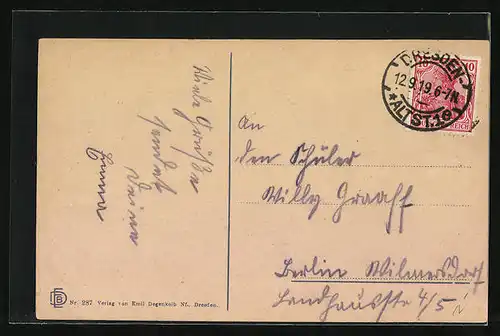 Viele Grüße
sendet
Deine
Emma
DRESDEN-
12.9.19.6-7N.
*ALTST.19
10
REICH
An
den Schüler
Willy Graaff
Berlin Wilmersdorf
Landhausstr 4/5
Nr. 287 Verlag von Emil Degenkolb Nf., Dresden.